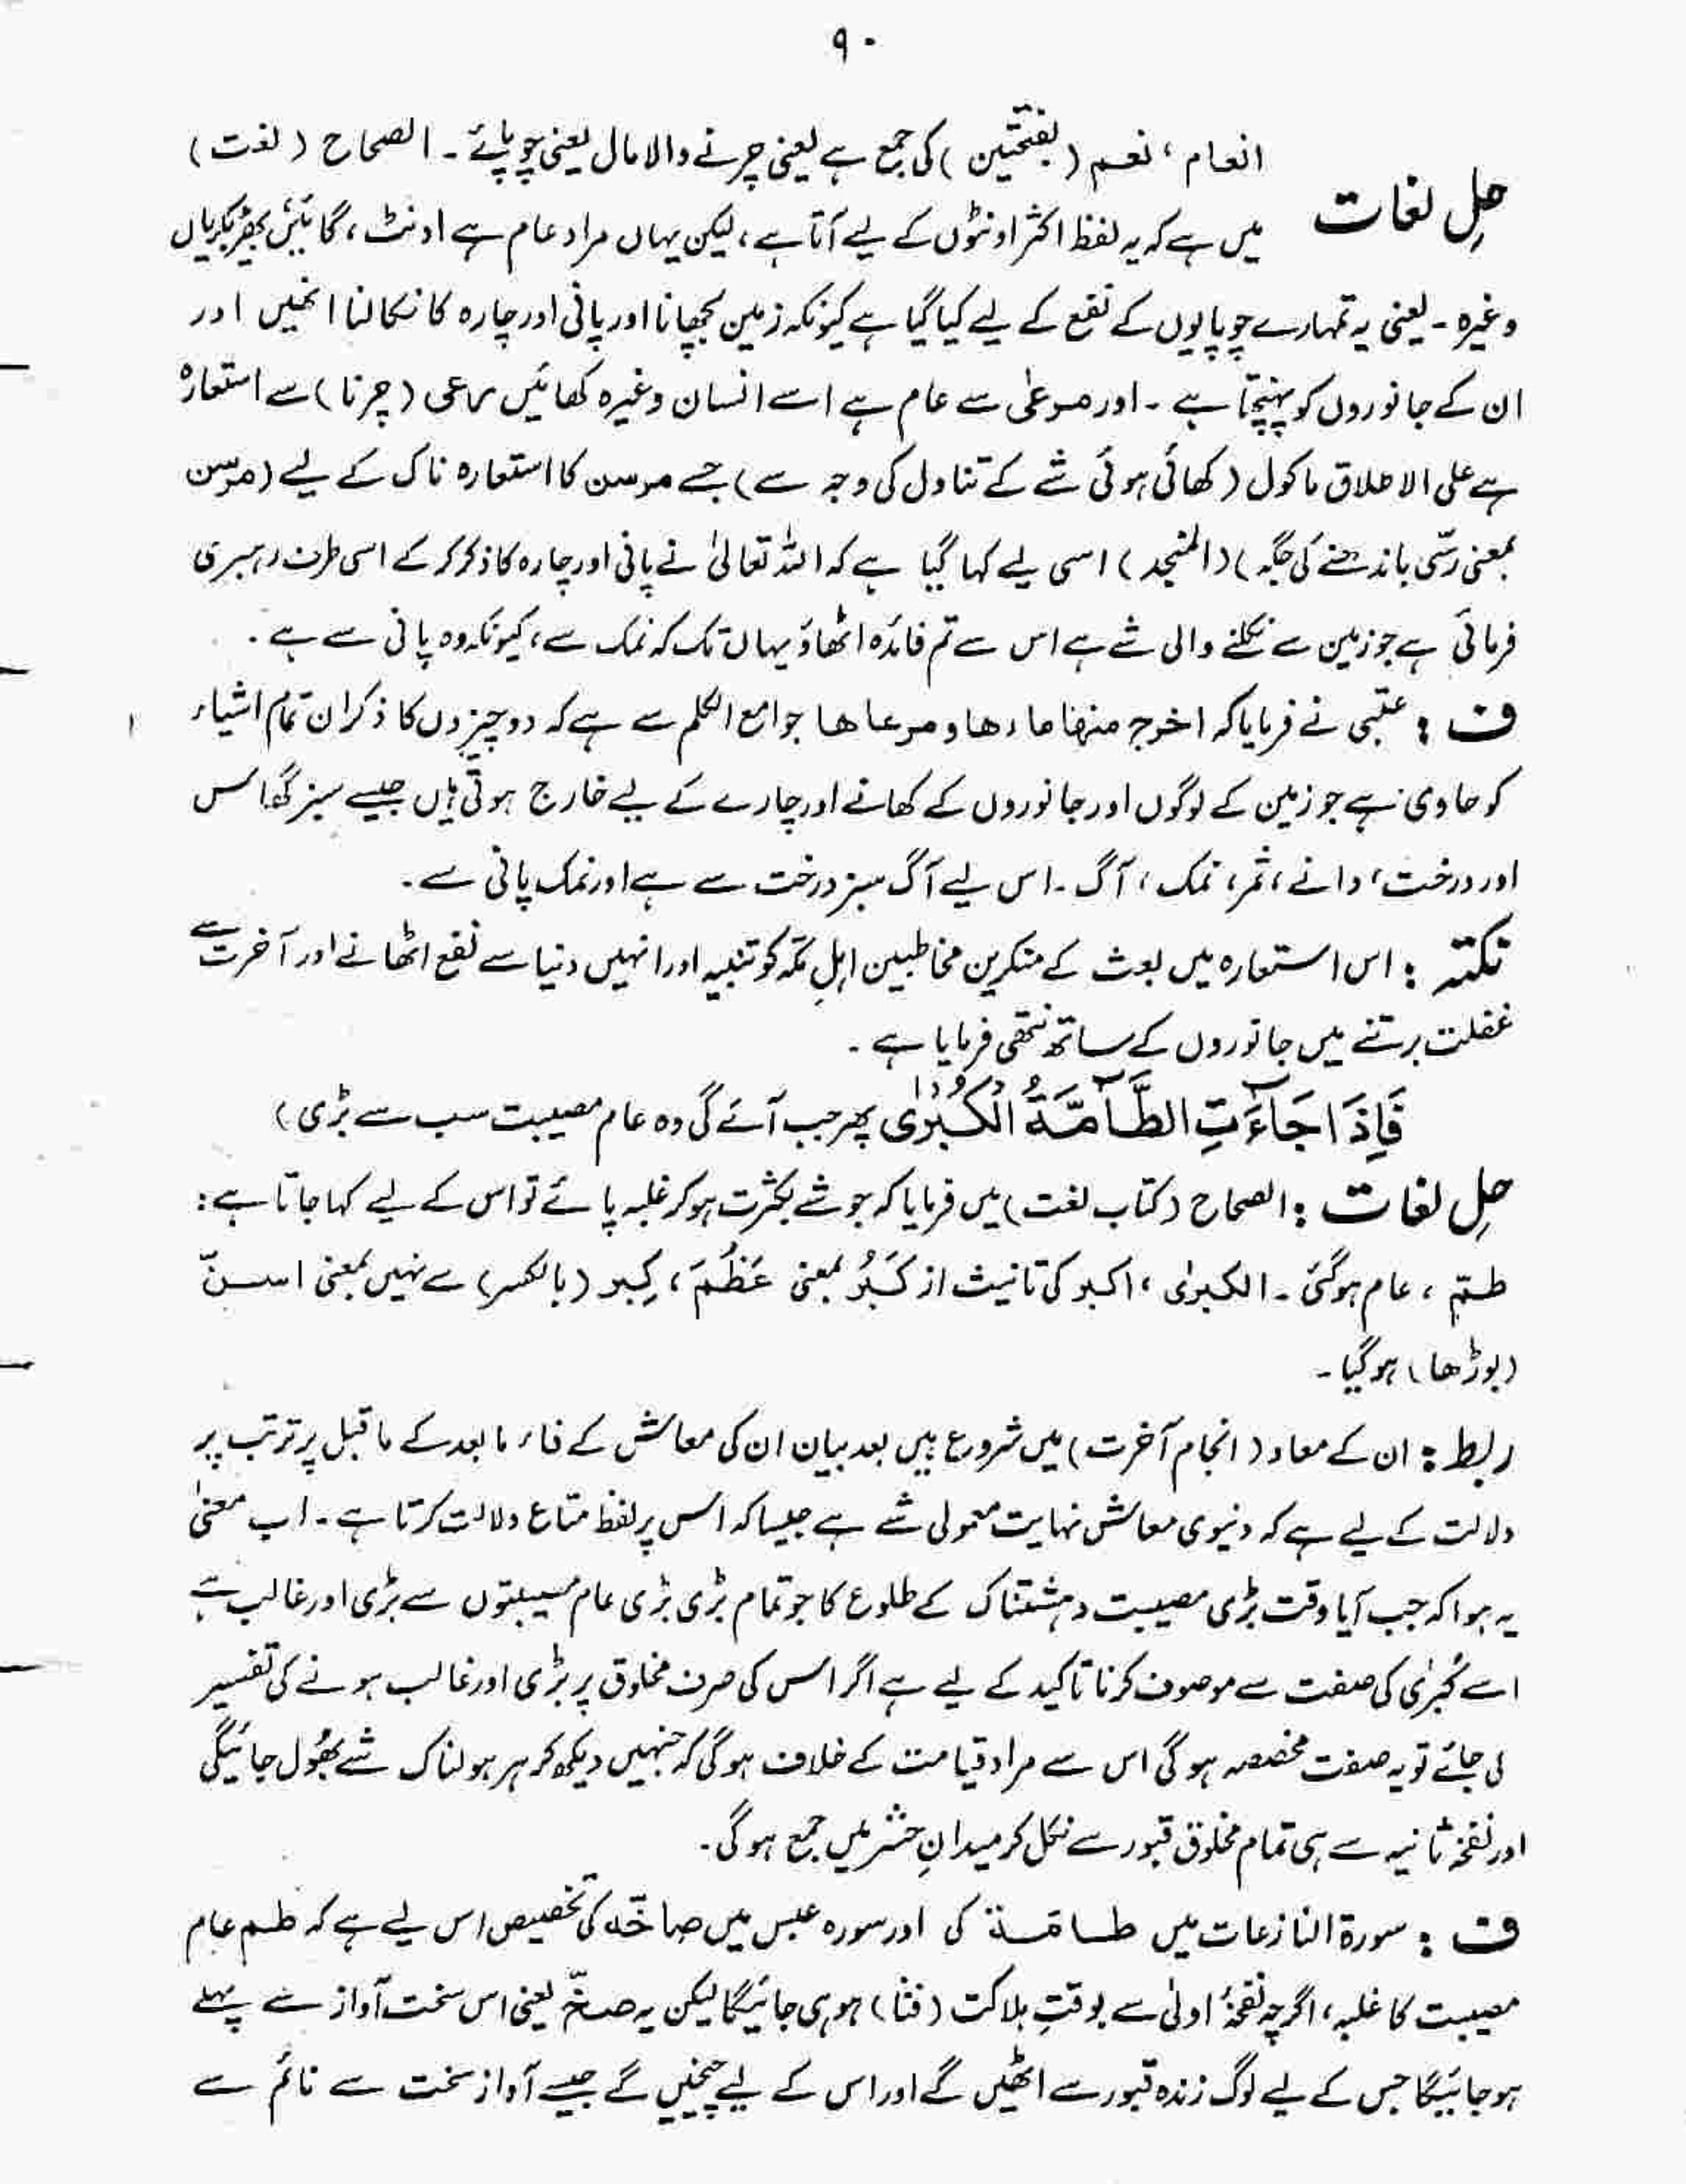 ۹۰
انعام ، نعم (بفتحتین) کی جمع ہے یعنی چرنے والا مال یعنی چوپائے ۔ الصحاح (لغت)
حلِ لغات
میں ہے کہ یہ لفظ اکثر اونٹوں کے لیے آتا ہے ، لیکن یہاں مراد عام ہے اونٹ ، گائیں بھیڑ بکریاں
وغیرہ ۔ یعنی یہ تمہارے چوپایوں کے نفع کے لیے کیا گیا ہے کیونکہ زمین بچھانا اور پانی اور چارہ کا نکالنا انھیں اور
ان کے جانوروں کو پہنچتا ہے ۔ اور مرعٰی سے عام ہے اسے انسان وغیرہ کھائیں رعی (چرنا) سے استعارہ
ہے علی الاطلاق ماکول (کھائی ہوئی شے کے تناول کی وجہ سے) جیسے مرسن کا استعارہ ناک کے لیے (مرسن
بمعنی رسّی باندھنے کی جگہ) (المنجد) اسی لیے کہا گیا ہے کہ اللہ تعالیٰ نے پانی اور چارہ کا ذکر کر کے اسی طرف رہبری
فرمائی ہے جو زمین سے نکلنے والی شے ہے اس سے تم فائدہ اٹھاؤ یہاں تک کہ نمک سے ، کیونکہ وہ پانی سے ہے ۔
ف : عتبی نے فرمایا کہ اخرج منھا ماءھا و مرعاھا جوامع الکلم سے ہے کہ دو چیزوں کا ذکر ان تمام اشیاء
کو حاوی ہے جو زمین کے لوگوں اور جانوروں کے کھانے اور چارے کے لیے خارج ہوتی ہیں جیسے سبز گھاس
اور درخت ، دانے ، ثمر ، نمک ، آگ ۔ اس لیے آگ سبز درخت سے ہے اور نمک پانی سے ۔
نکتہ : اس استعارہ میں بعث کے منکرین مخاطبین اہلِ مکہ کو تنبیہ اور انہیں دنیا سے نفع اٹھانے اور آخرت سے
غفلت برتنے میں جانوروں کے ساتھ فرمایا ہے ۔
فَاِذَا جَآءَتِ الطَّآمَّةُ الْكُبْرٰى پھر جب آئے گی وہ عام مصیبت سب سے بڑی)
حلِ لغات : الصحاح (کتاب لغت) میں فرمایا کہ جو شے بکثرت ہو کر غلبہ پائے تو اس کے لیے کہا جاتا ہے :
طمّ ، عام ہو گئی ۔ الکبرٰی ، اکبر کی تانیث از کَبُرَ بمعنی عَظُمَ ، کِبر (بالکسر) سے نہیں بمعنی اسنّ
(بوڑھا) ہو گیا ۔
ربط : ان کے معاد (انجام آخرت) میں شروع ہیں بعد بیان ان کی معاش کے فاء مابعد کے ماقبل پر ترتب پر
دلالت کے لیے ہے کہ دنیوی معاش نہایت معمولی شے ہے جیسا کہ اس پر لفظ متاع دلالت کرتا ہے ۔ اب معنیٰ
یہ ہوا کہ جب آیا وقت بڑی مصیبت دہشتناک کے طلوع کا جو تمام بڑی بڑی عام مصیبتوں سے بڑی اور غالب ہے
اسے کبرٰی کی صفت سے موصوف کرنا تاکید کے لیے ہے اگر اس کی صرف مخلوق پر بڑی اور غالب ہونے کی تفسیر
لی جائے تو یہ صفت مخصصہ ہو گی اس سے مراد قیامت کے خلاف ہو گی کہ جنہیں دیکھ کر ہر ہولناک شے بھُول جائیگی
اور نفخۂ ثانیہ سے ہی تمام مخلوق قبور سے نکل کر میدانِ حشر میں جمع ہو گی ۔
ف : سورۃ النازعات میں طامۃ کی اور سورہ عبس میں صاخّہ کی تخصیص اس لیے ہے کہ طم عام
مصیبت کا غلبہ ، اگرچہ نفخۂ اولیٰ سے بوقتِ ہلاکت (فنا) ہو ہی جائیگا لیکن یہ صخّ یعنی اس سخت آواز سے پہلے
ہو جائیگا جس کے لیے لوگ زندہ قبور سے اٹھیں گے اور اس کے لیے چیخیں گے جیسے آواز سخت سے نائم سے